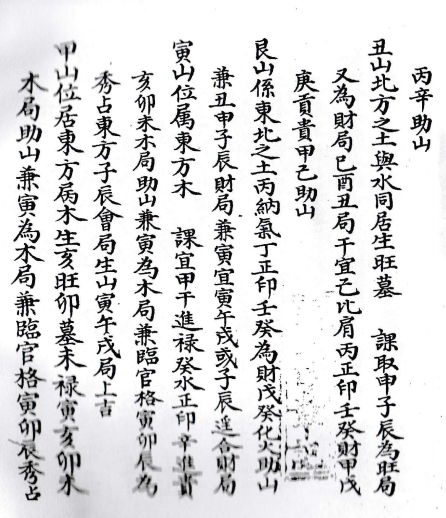 丙辛助山
丑山北方之土與水同居生旺墓　課取申子辰為旺局
又為財局巳酉丑局干宜己比肩丙正印壬癸財甲戊
庚貢貴甲己助山
艮山係東北之土丙納氣丁正印壬癸為財戊癸化火助山
兼丑申子辰財局兼寅宜寅午戌或子辰逢合財局
寅山位属東方木　課宜甲干進祿癸水正印辛進貴
亥卯未木局助山兼寅為木局兼臨官格寅卯辰為
秀占東方子辰會局生山寅午戌局上吉
甲山位居東方属木生亥旺卯墓未祿寅亥卯未
木局助山兼寅為木局兼臨官格寅卯辰秀占